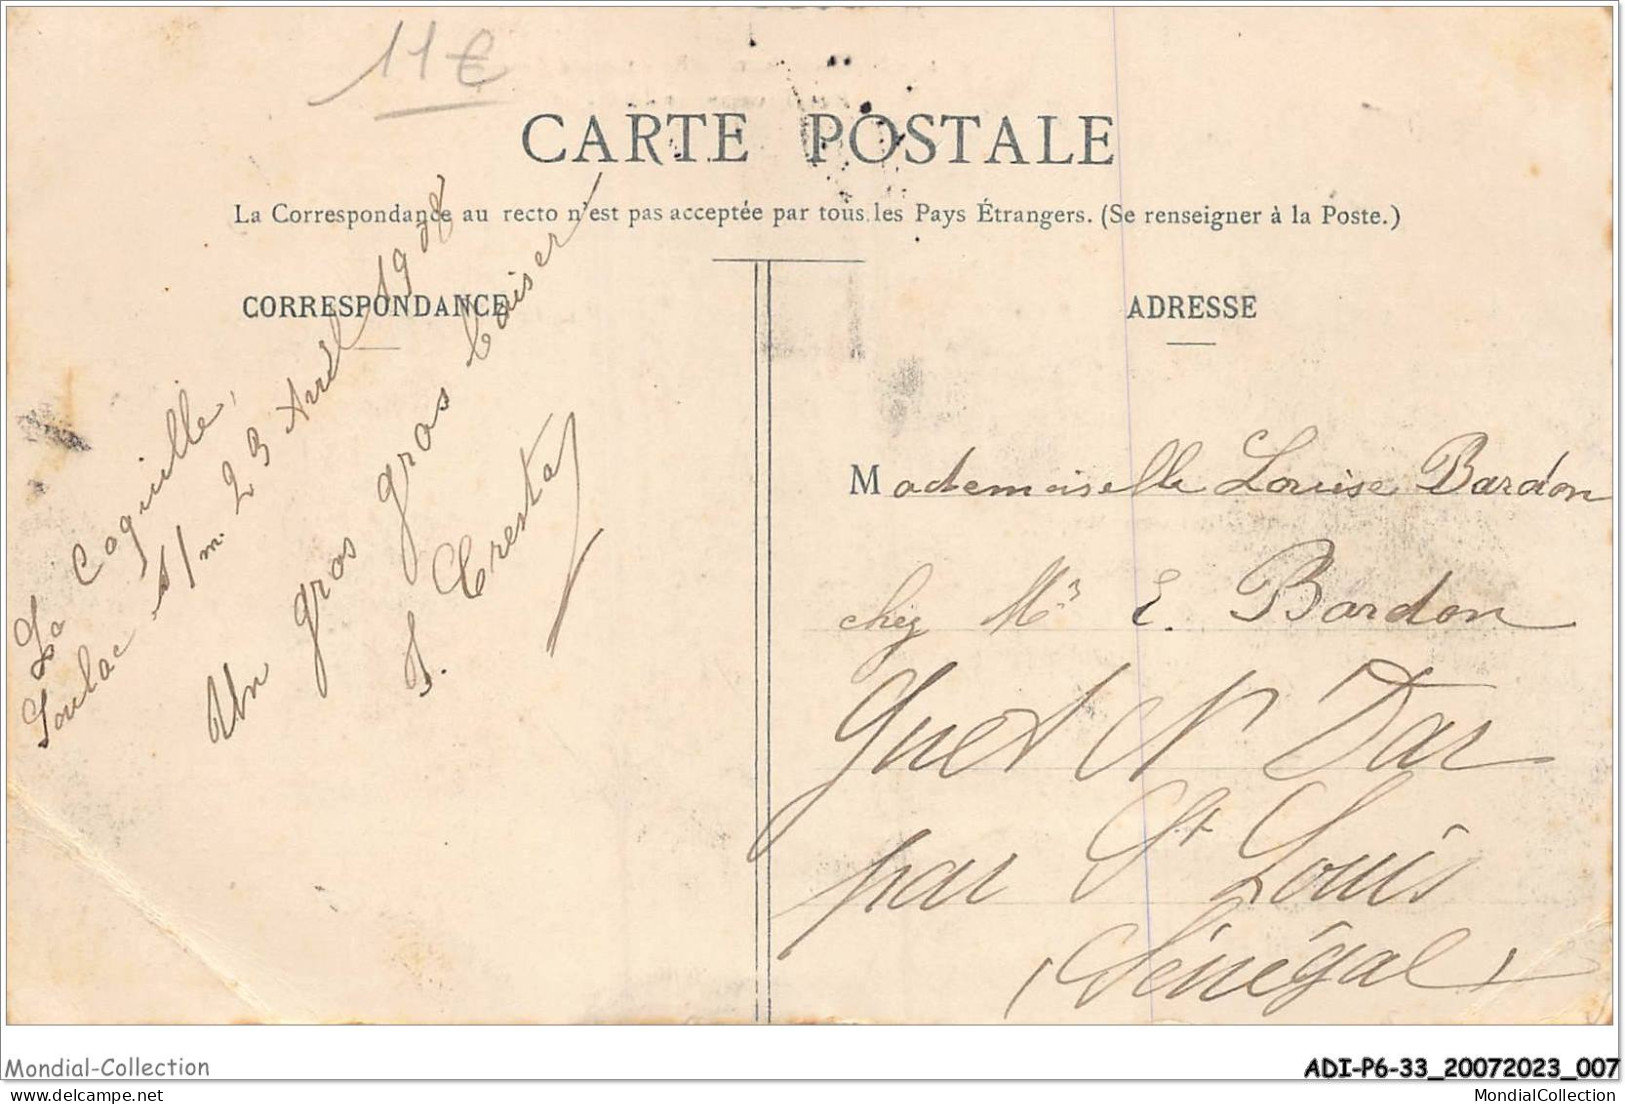 11€
CARTE POSTALE
La Correspondance au recto n'est pas acceptée par tous les Pays Étrangers. (Se renseigner à la Poste.)
CORRESPONDANCE
La Coquille,
Soulac s/m. 23 Avril 1908
Un gros gros baiser
ADRESSE
Mademoiselle Louise Bardon
chez Mr E. Bardon
Guet N Dar
par St Louis
(Sénégal)
Mondial-Collection
ADI-P6-33_20072023_007
delcampe.net
MondialCollection